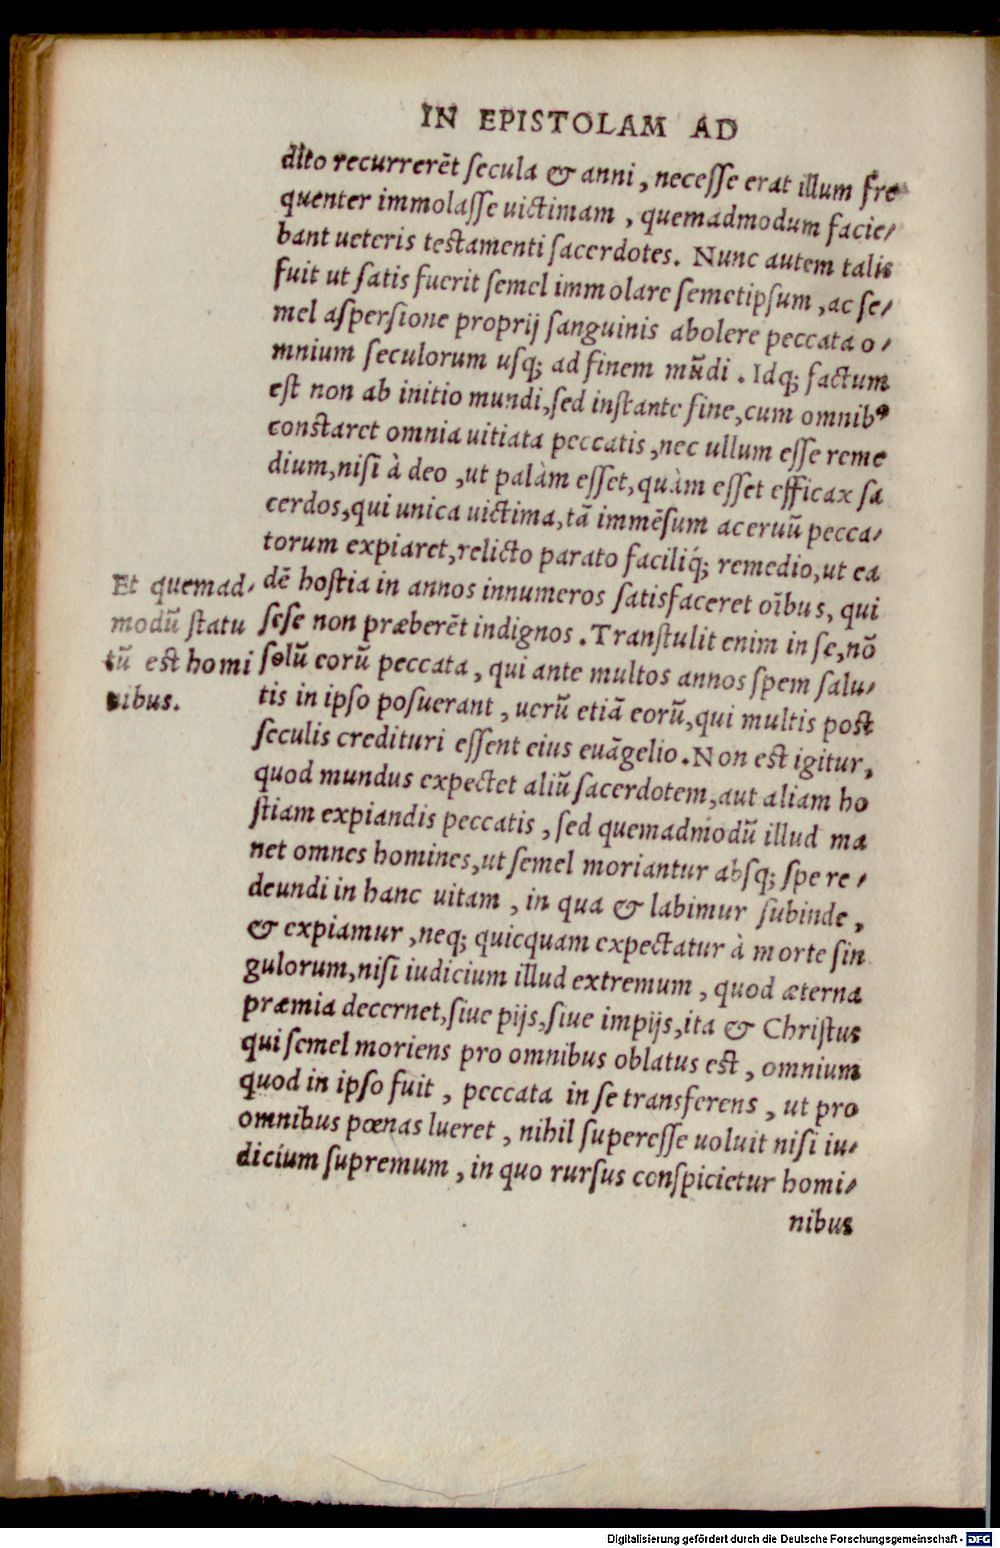 IN EPISTOLAM AD
dito recurrerẽt ſecula & anni, neceſſe erat illum fre
quenter immolaſſe uictimam, quemadmodum facie-
bant ueteris teſtamenti ſacerdotes. Nunc autem talis
fuit ut ſatis fuerit ſemel immolare ſemetipſum, ac ſe-
mel aſperſione proprij ſanguinis abolere peccata o-
mnium ſeculorum uſq; ad finem mũdi. Idq; factum
eſt non ab initio mundi, ſed inſtante fine, cum omnibꝰ
conſtaret omnia uitiata peccatis, nec ullum eſſe reme
dium, niſi à deo, ut palàm eſſet, quàm eſſet efficax ſa
cerdos, qui unica uictima, tã immẽſum aceruũ pecca-
torum expiaret, relicto parato faciliq́; remedio, ut ea
dẽ hoſtia in annos innumeros ſatisfaceret oĩbus, qui
ſeſe non præberẽt indignos. Tranſtulit enim in ſe, nõ
ſolũ eorũ peccata, qui ante multos annos ſpem ſalu-
tis in ipſo poſuerant, uerũ etiã eorũ, qui multis poſt
ſeculis credituri eſſent eius euãgelio. Non eſt igitur,
quod mundus expectet aliũ ſacerdotem, aut aliam ho
ſtiam expiandis peccatis, ſed quemadmodũ illud ma
net omnes homines, ut ſemel moriantur abſq; ſpe re-
deundi in hanc uitam, in qua & labimur ſubinde,
& expiamur, neq; quicquam expectatur à morte ſin
gulorum, niſi iudicium illud extremum, quod æterna
præmia decernet, ſiue pijs, ſiue impijs, ita & Chriſtus
qui ſemel moriens pro omnibus oblatus eſt, omnium
quod in ipſo fuit, peccata in ſe transferens, ut pro
omnibus pœnas lueret, nihil ſupereſſe uoluit niſi iu-
dicium ſupremum, in quo rurſus conſpicietur homi-
nibus
Et quemad-
modũ ſtatu
tũ eſt homi
nibus.
Digitalisierung gefördert durch die Deutsche Forschungsgemeinschaft - DFG